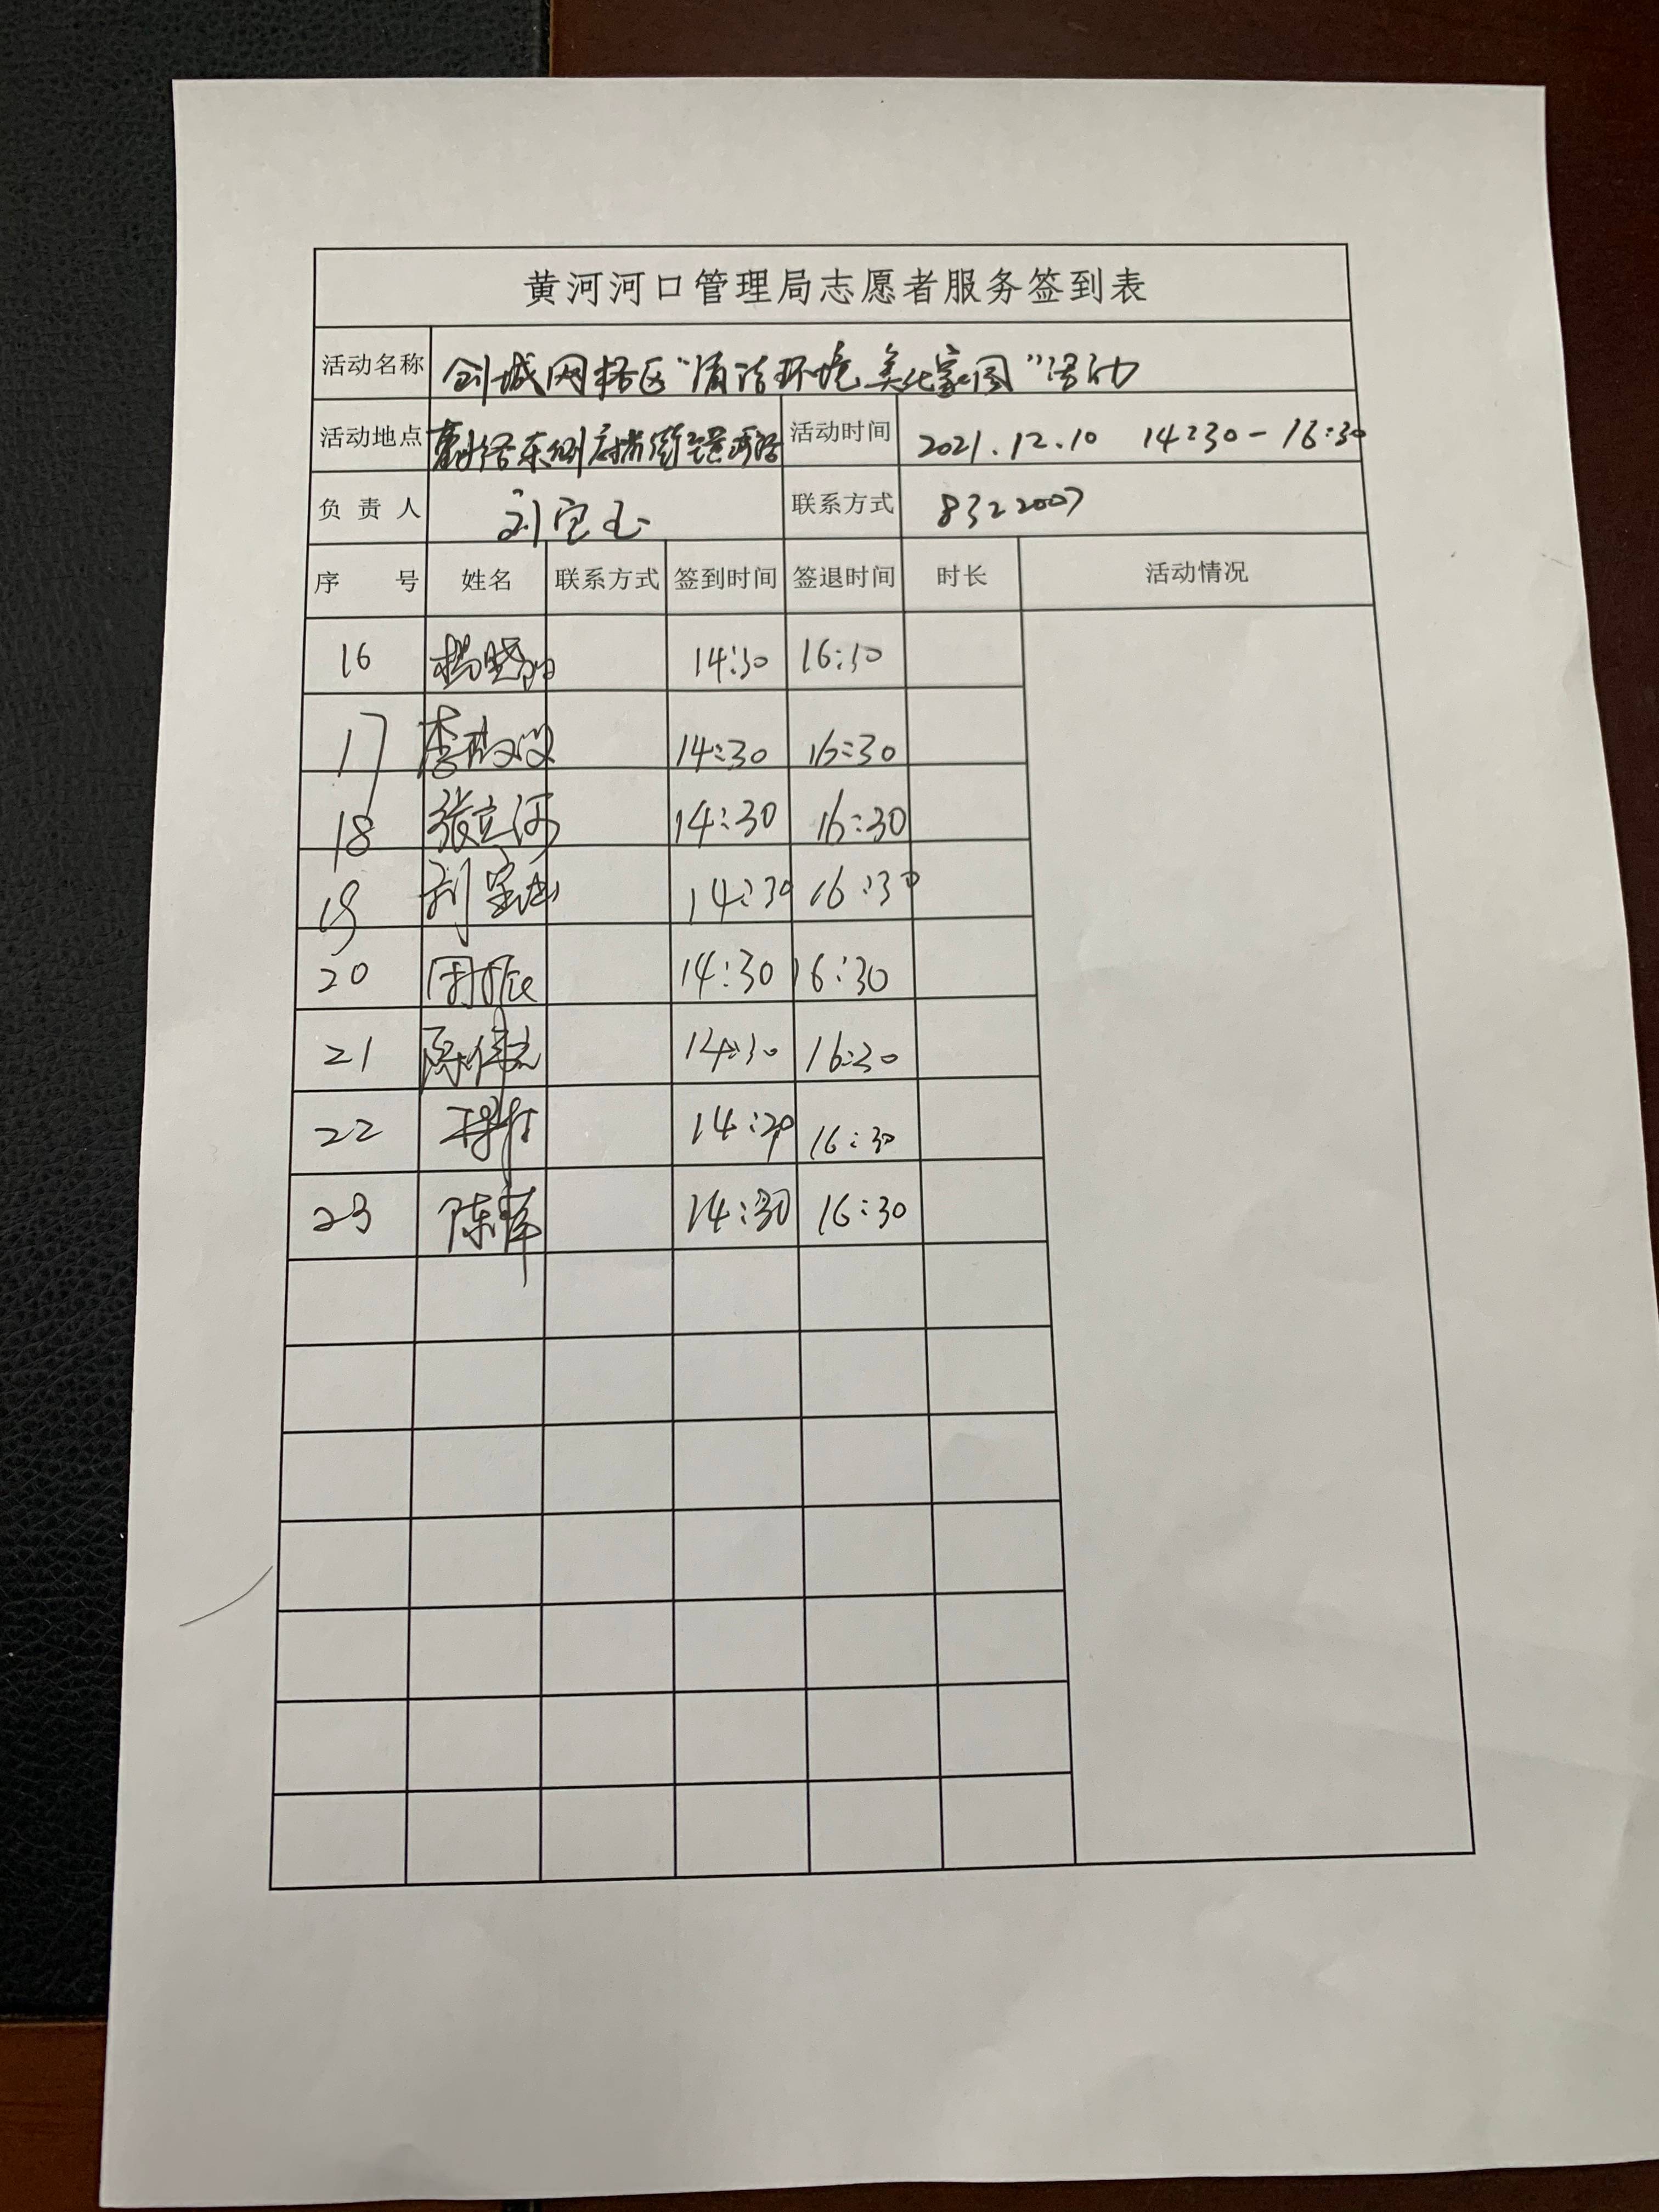 黄河河口管理局志愿者服务签到表
活动名称 创城网格区“清洁环境 美化家园”活动
活动地点 东侧府前街 活动时间 2021.12.10 14:30-16:30
负责人 刘宝玉 联系方式 8322007
序号 姓名 联系方式 签到时间 签退时间 时长 活动情况
16 14:30 16:30
17 李 14:30 16:30
18 张立河 14:30 16:30
19 刘 14:30 16:30
20 周 14:30 16:30
21 陈伟志 14:30 16:30
22 14:30 16:30
23 陈军 14:30 16:30